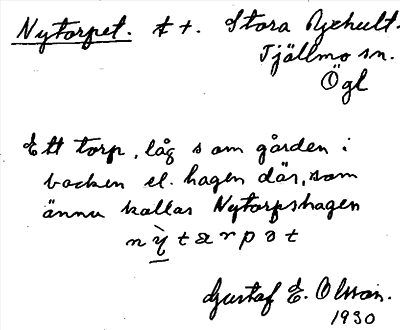 Nytorpet. t t. Stora Ryckelt.
Tjällmo sn.
Ögl
Ett torp, låg som gården i
backen el. hagen där, som
ännu kallas Nytorpshagen
nỳtarpət
Gustaf E. Olsson.
1930